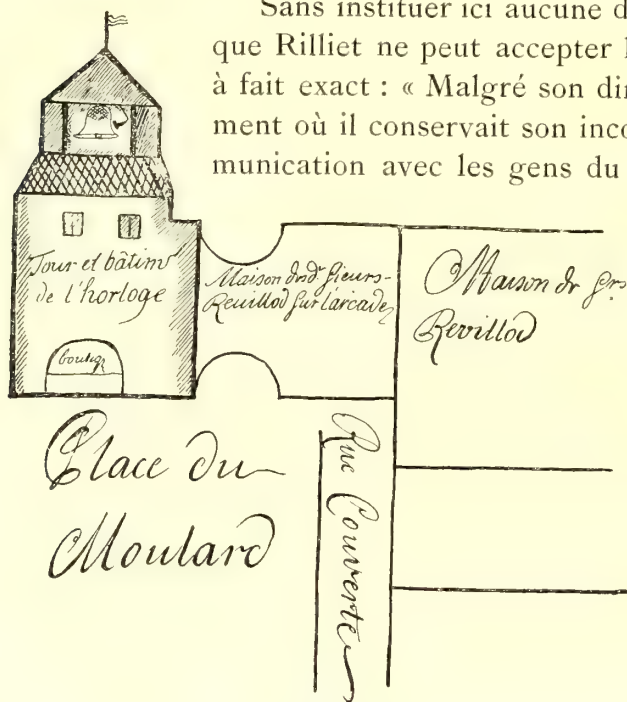 Sans instituer ici aucune d
que Rilliet ne peut accepter l
à fait exact : « Malgré son di
ment où il conservait son inco
munication avec les gens du
Tour et bâtimt
de l'horloge
boutiq
Maison desdt Sieurs
Revilliod sur l'arcade
Maison dr Srs
Revilliod
Place du
Moulard
Rue Couverte